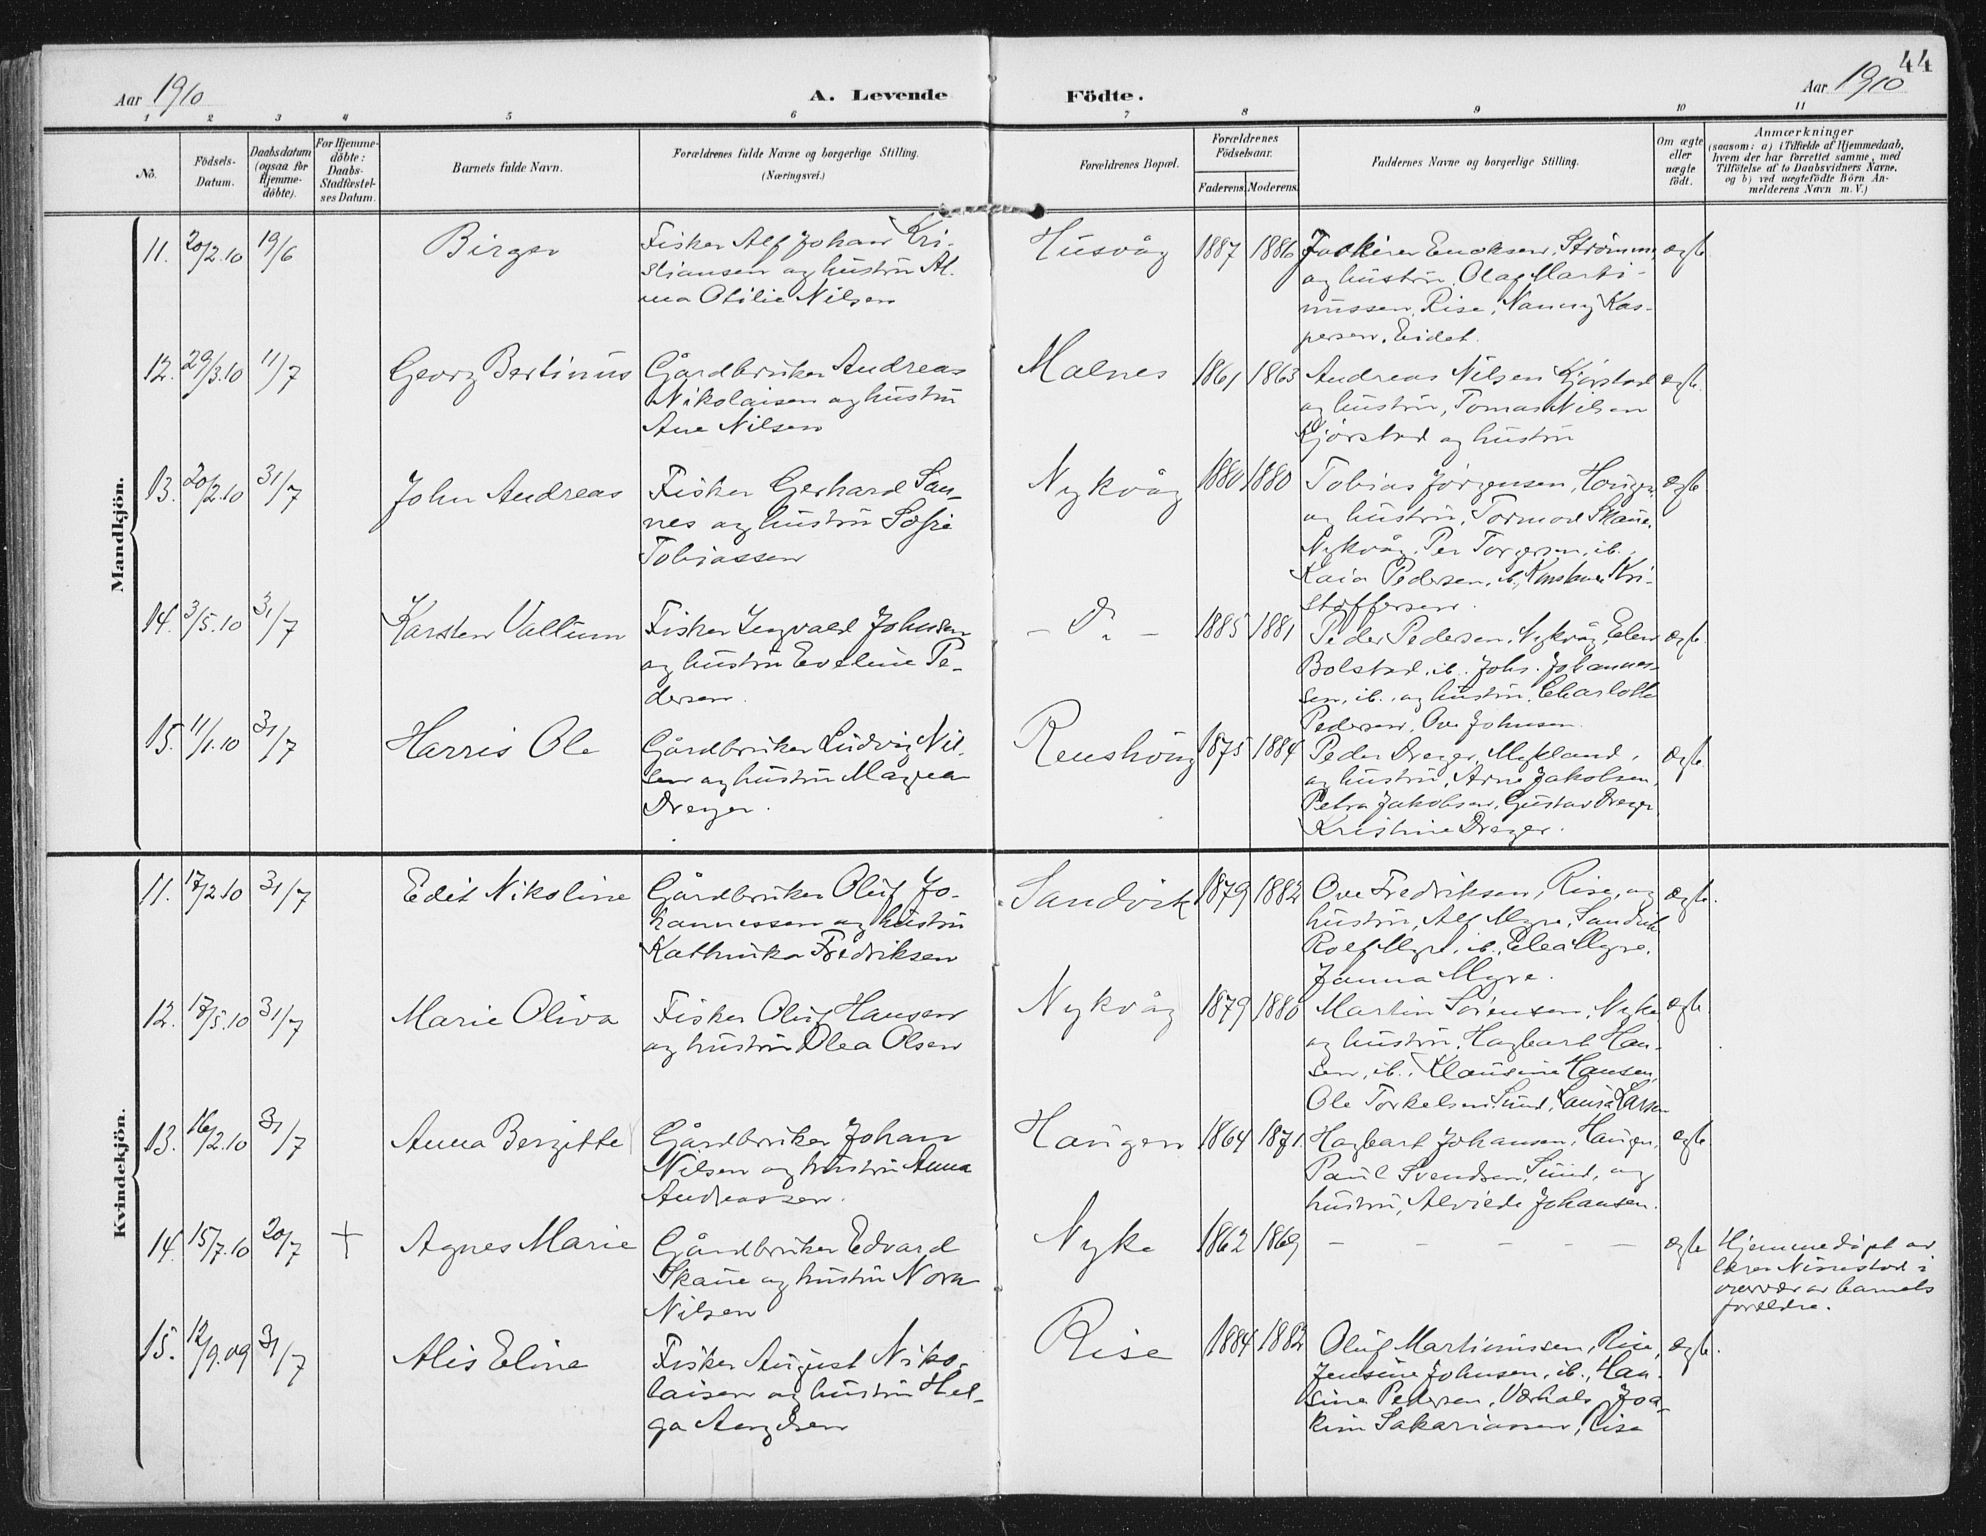 44
Aar 1910 A. Levende Födte. Aar 1910
1 2 3 4 5 6 7 8 9 10 11
No.
Födsels-
Datum.
Daabsdatum
(ogsaa for
Hjemme-
döbte).
For Hjemme-
döbte:
Daabs-
Stadfæstel-
ses Datum.
Barnets fulde Navn.
Forældrenes fulde Navne og borgerlige Stilling.
(Næringsvei.)
Forældrenes Bopæl.
Forældrenes
Födselsaar.
Faderens. Moderens.
Faddernes Navne og borgerlige Stilling.
Om ægte
eller
uægte
födt.
Anmærkninger
(saasom: a) i Tilfælde af Hjemmedaab,
hvem der har forrettet samme, med
Tilföielse af to Daabsvidners Navne,
og b) ved uægtefödte Börn An-
melderens Navn m. V.)
Mandkjön.
11. 20/2.10 19/6 Birger
Fisker Alf Johan Kri-
stiansen og hustru Al-
ma Otilie Nilsen
Husvåg 1887 1886
Eriksen, Strømme,
og hustru, Olaf Marti-
nussen, Rise, Nanny Kas-
persen, Eidet.
ægte
12. 29/3.10 11/7 Georg Bertinus
Gårdbruker Andreas
Nikolaisen og hustru
Ane Nilsen
Malnes 1861 1863
Andreas Nilsen Kjørstad
og hustru, Tomas Nilsen
Kjørstad og hustru
ægte.
13. 20/2.10 31/7 John Andreas
Fisker Gerhard San-
nes og hustru Sofie
Tobiassen
Nykvåg 1880 1880
Tobias Jørgensen, Haugen,
og hustru, Tormod Skaue,
Nykvåg, Per Torgersen, ib.,
Kaia Pedersen, ib., Kri-
stoffersen.
ægte
14. 3/5.10 31/7 Karsten Valtum
Fisker Ingvald Johnsen
og hustru Eveline Pe-
dersen.
- D. - 1885 1881
Peder Pedersen, Nykvåg, Elen
Bolstad, ib., Johs. Johannes-
sen, ib., og hustru, Charlotte
Pedersen, Ove Johnsen.
ægte.
15. 11/1.10 31/7 Harris Ole
Gårdbruker Ludvig Nil-
sen og hustru Magna
Dreyer.
Renshåug 1875 1884
Peder Dreyer, Mykland,
og hustru, Arne Jakobsen,
Petra Jakobsen, Gustav Dreyer,
Kristine Dreyer.
ægte
Kvindekjön.
11. 17/2.10 31/7 Edit Nikoline
Gårdbruker Oluf Jo-
hannessen og hustru
Kathinka Fredriksen
Sandvik 1879 1882
Ove Fredriksen, Rise, og
hustru, Alf Myre, Sandvik
Rolf Myre, ib., Elea Myre,
Janna Myre.
ægte.
12. 17/5.10 31/7 Marie Oliva
Fisker Oluf Hansen
og hustru Olea Olsen
Nykvåg 1879 1880
Martin Sørensen, Nyke
og hustru, Hagbart Han-
sen, ib., Klausine Hansen,
Ole Torkelsen Sund, Laura Larsen
ægte.
13. 16/2.10 31/7 Anna Bergitte
Gårdbruker Johan
Nilsen og hustru Anna
Andreassen.
Haugen 1864 1871.
Hagbart Johansen, Haugen,
Paul Svendsen, Sund, og
hustru, Alvilde Johansen.
ægte.
14. 15/7.10 20/7 + Agnes Marie
Gårdbruker Edvard
Skaue og hustru Nora
Nilsen
Nyke 1862 1869 - - - - -
ægte
Hjemmedøpt av
lærer i
overvær av barnets
forældre.
15. 12/9.09 31/7 Alis Eline
Fisker August Niko-
laisen og hustru Hel-
ga
Rise 1884 1882
Oluf Martinussen, Rise,
Jensine Johnsen, ib., Han-
sine Pedersen, Værhals, Joa-
kim Sakariassen, Rise
ægte.